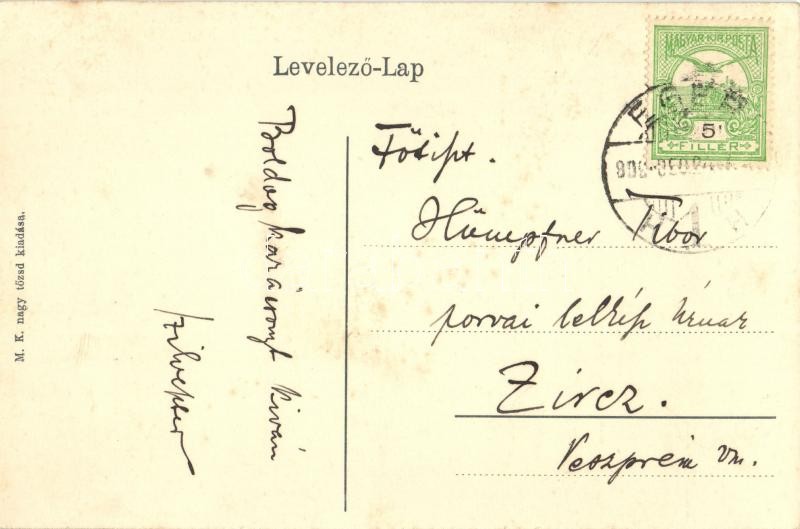 Levelező-Lap
MAGYAR·KIR·POSTA
5
FILLÉR
Boldog karácsonyt kíván
Szilveszter
Főtiszt.
Hümpfner Tibor
porvai lelkész úrnak
Zircz.
Veszprém vm.
M. K. nagy tőzsd kiadása.